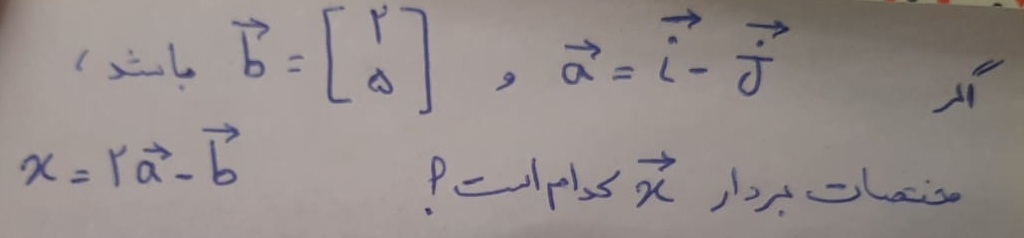 اگر a⃗ = i⃗ - j⃗ و b⃗ = [۲ ۵] باشد،
مختصات بردار x⃗ کدام است؟ x = ۲a⃗ - b⃗